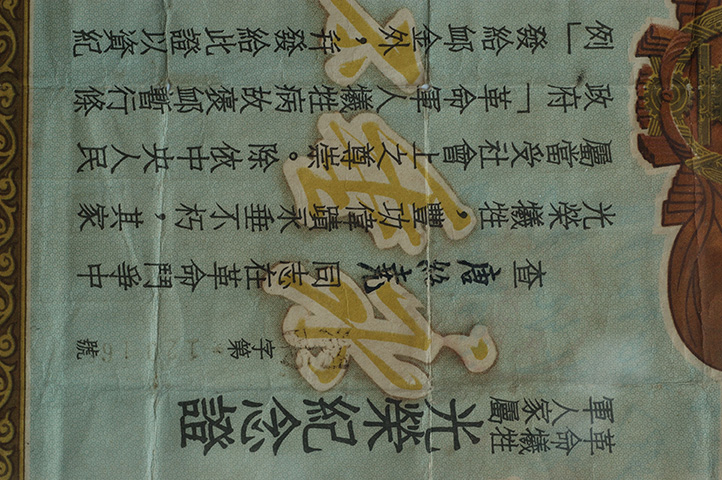 革命犧牲
軍人家屬
光榮紀念證
字第 號
查唐 堯同志在革命鬥爭中
光榮犧牲，豐功偉蹟永垂不朽，其家
屬當受社會上之尊崇。除依中央人民
政府「革命軍人犧牲病故褒卹暫行條
例」發給卹金外，并發給此證以資紀
永垂不